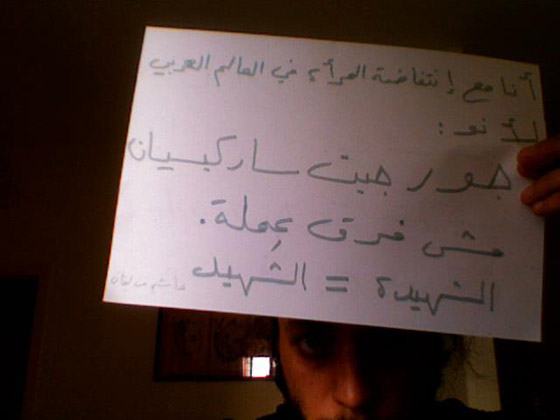 أنا مع إنتفاضة المرأة في العالم العربي
لأنو :
جورجيت ساركيسيان
مش فرق عِملة.
الشهيدة = الشهيد